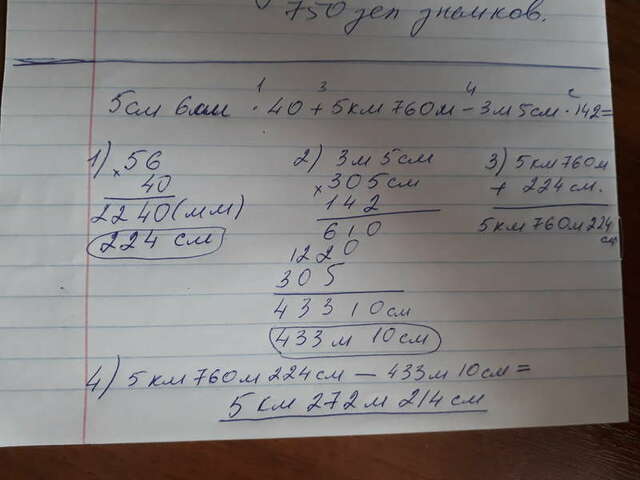 750 зел значков.
1 3 4 2
5см 6мм · 40 + 5км 760м - 3м 5см · 142 =
1) 56
× 40
2240(мм)
224 см
2) 3м 5см
× 305см
142
610
1220
305
43310см
433м 10см
3) 5км 760м
+ 224 см.
5км 760м 224
см
4) 5км 760м 224см — 433м 10см =
5 км 272м 214см